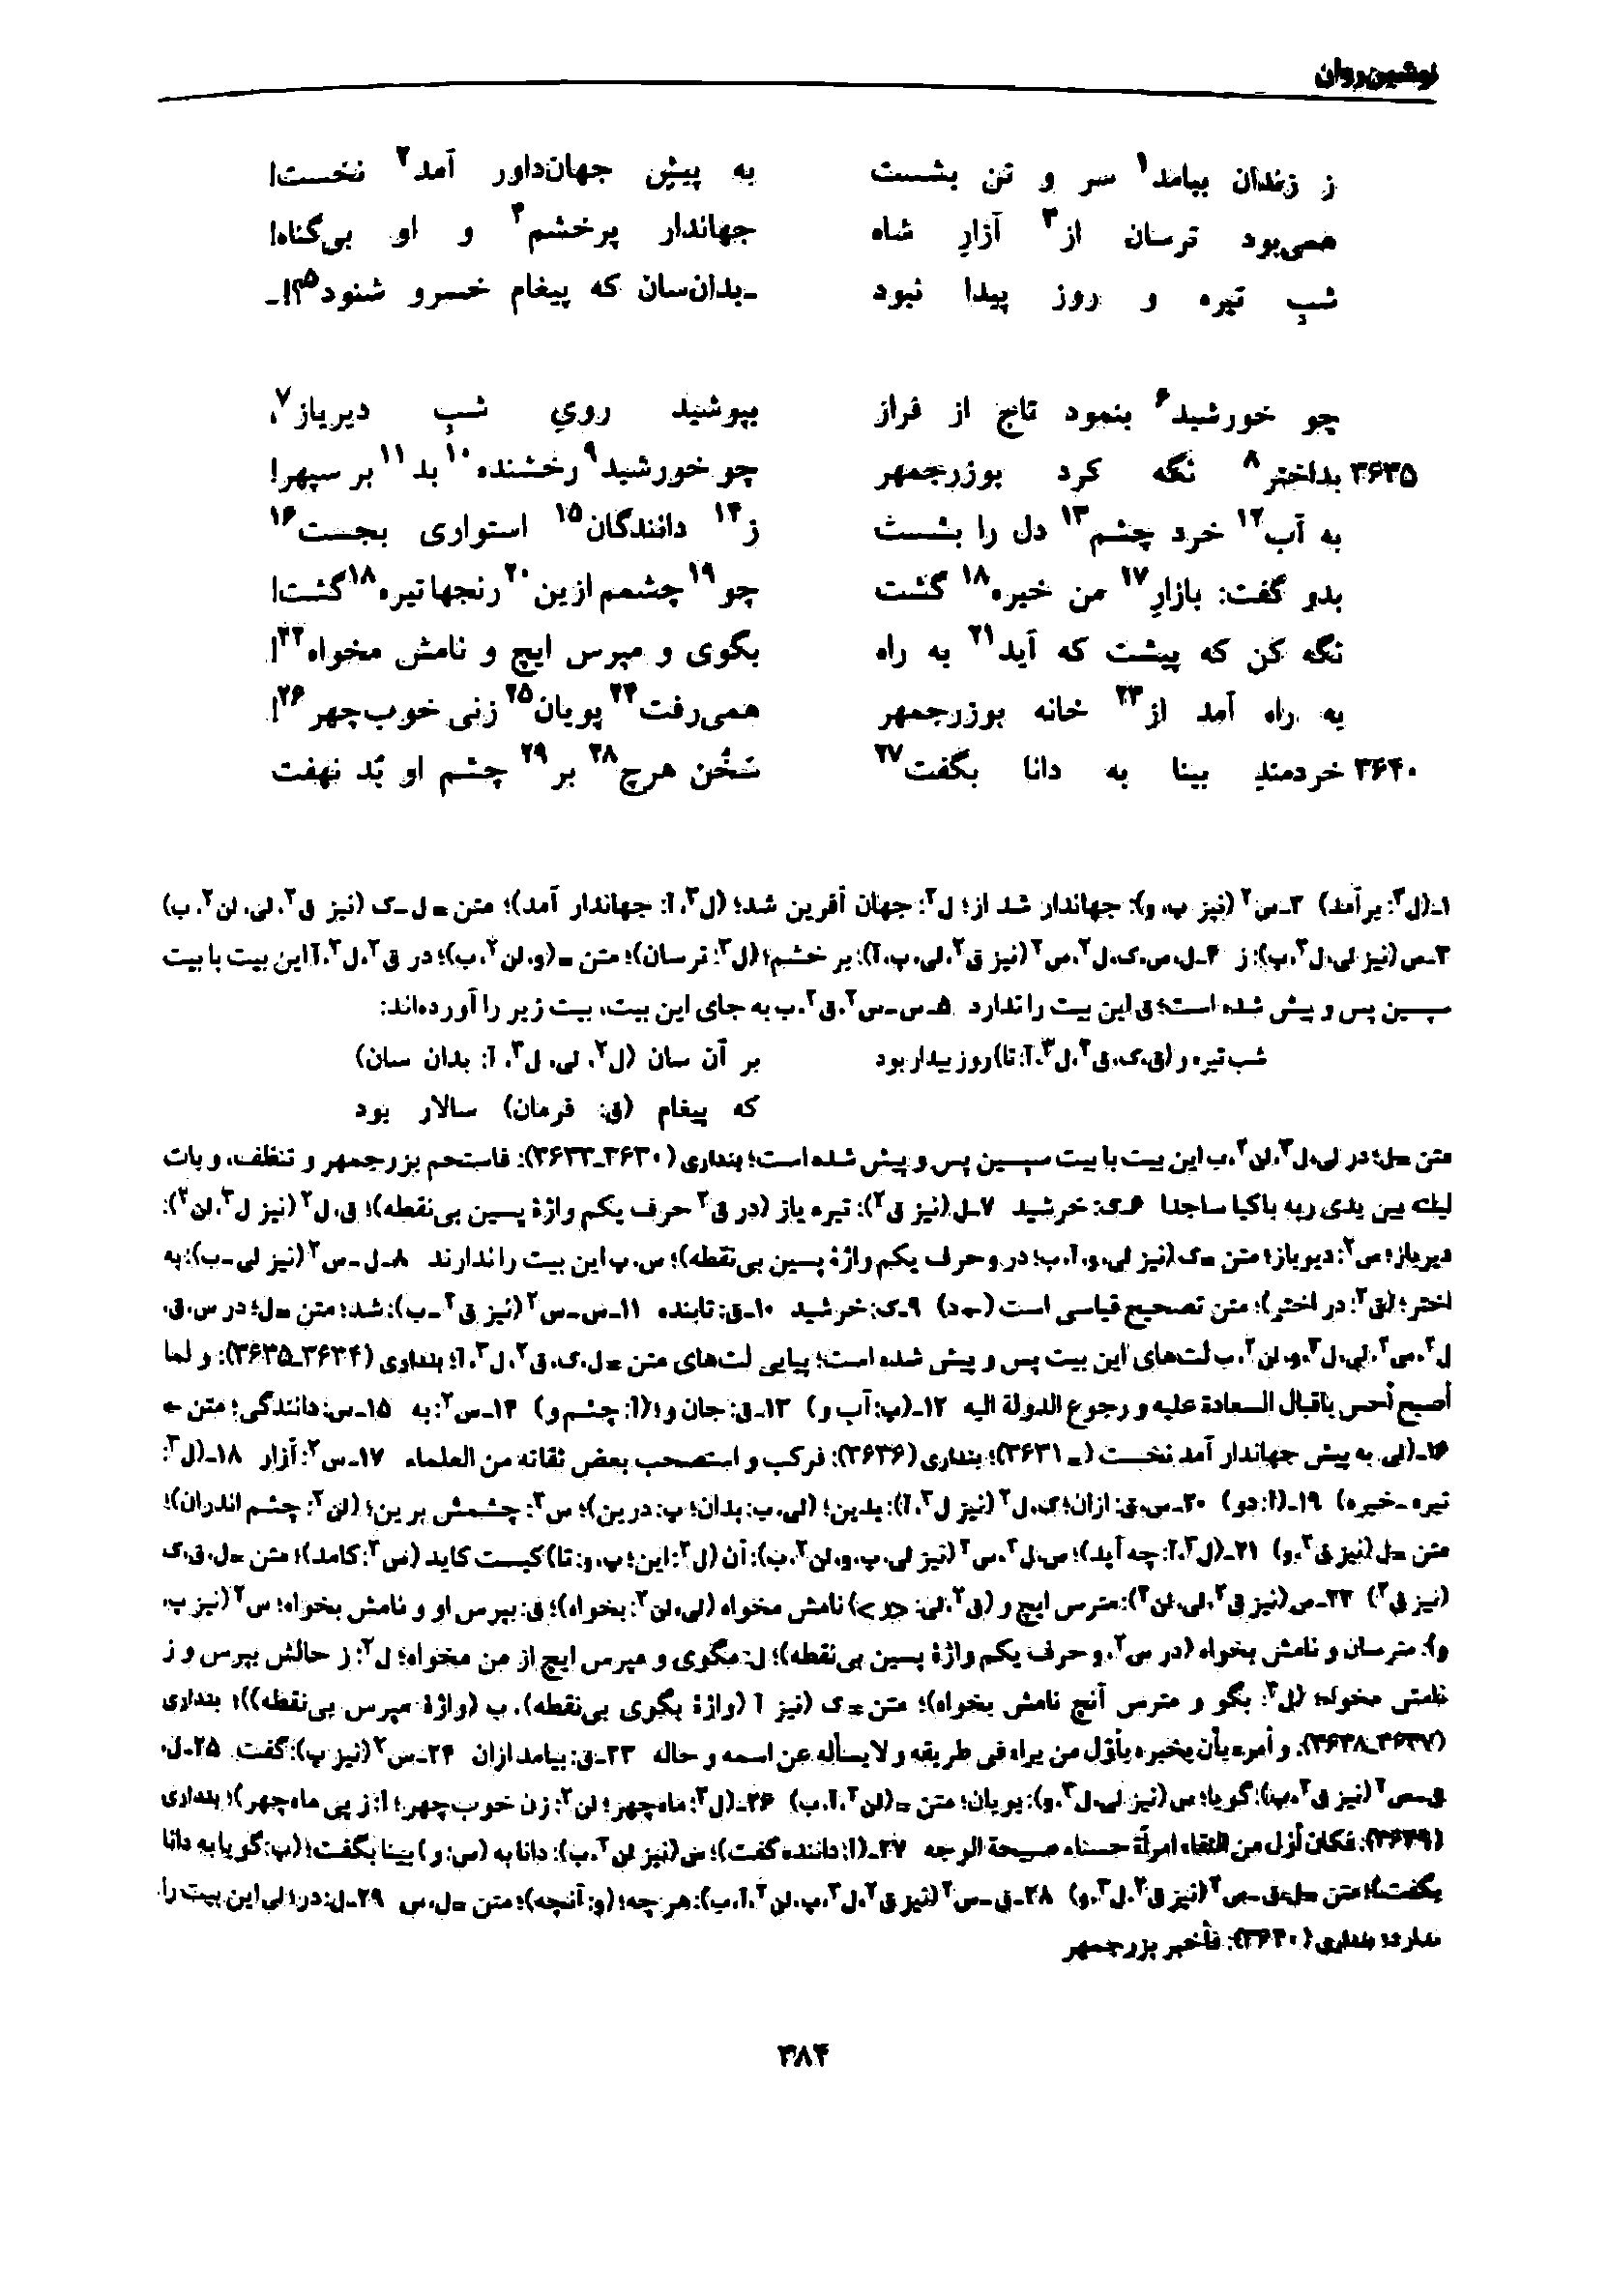 نوشین‌روان
ز زندان بیامد۱ سر و تن بشست به پیشِ جهان‌داور آمد۲ نخست!
همی‌بود ترسان از۳ آزارِ شاه جهاندار پرخشم۴ و او بی‌گناه!
شبِ تیره و روز پیدا نبود ـ بدان‌سان که پیغام خسرو شنود۵؟! ـ
چو خورشید۶ بنمود تاج از فراز بپوشید رویِ شبِ دیریاز۷،
۳۶۳۵ بداختر۸ نگه کرد بوزرجمهر چو خورشید۹ رخشنده۱۰ بد۱۱ بر سپهر!
به آب۱۲ خرد چشم۱۳ دل را بشست ز۱۴ دانندگان۱۵ استواری بجست۱۶
بدو گفت: بازارِ۱۷ من خیره۱۸ گشت چو۱۹ چشمم ازین۲۰ رنجها تیره۱۸ گشت!
نگه کن که پیشت که آید۲۱ به راه بگوی و مپرس ایچ و نامش مخواه۲۲!
به راه آمد از۲۳ خانه بوزرجمهر همی‌رفت۲۴ پویان۲۵ زنی خوب‌چهر۲۶!
۳۶۴۰ خردمندِ بینا به دانا بگفت۲۷ سَخُن هرچ۲۸ بر۲۹ چشم او بُد نهفت
۱ـ(ل۳: برآمد) ۲ـ س۲ (نیز پ، و): جهاندار شد از؛ ل۲: جهان آفرین شد؛ (ل۳، آ: جهاندار آمد)؛ متن = ل ـ ک (نیز ق۲، لی، لن۲، ب)
۳ـ س (نیز لی، ل۳، پ): ز ۴ـ ل، س، ک، ل۲، س۲ (نیز ق۲، لی، پ، آ): بر خشم؛ (ل۳: ترسان)؛ متن = (و، لن۲، ب)؛ در ق۲، ل۳، آ این بیت با بیت
سپسین پس و پیش شده است؛ ق این بیت را ندارد ۵ـ س ـ س۲، ق۲ ـ ب به جای این بیت، بیت زیر را آورده‌اند:
شب تیره و (ق، ک، ق۲، ل۳، آ: تا) روز بیدار بود بر آن سان (ل۲، لی، ل۳، آ: بدان سان)
که پیغام (ق: فرمان) سالار بود
متن = ل؛ در لی، ل۳، لن۲، ب این بیت با بیت سپسین پس و پیش شده است؛ بنداری (۳۶۳۰ـ۳۶۳۳): فاستحم بزرجمهر و تنظف، و بات
لیلته بین یدی ربه باکیا ساجدا ۶ـ ک: خرشید ۷ـ ل (نیز ق۲): تیره یاز (در ق۲ حرف یکم واژهٔ پسین بی‌نقطه)؛ ق، ل۲ (نیز ل۳، لن۲):
دیرباز؛ س۲: دیوباز؛ متن = ک (نیز لی، و، آ، ب؛ در و حرف یکم واژهٔ پسین بی‌نقطه)؛ س، پ این بیت را ندارند ۸ـ ل ـ س۲ (نیز لی ـ ب): به
اختر؛ (ق۲: در اختر)؛ متن تصحیح قیاسی است ۹ـ ک: خرشید ۱۰ـ ق: تابنده ۱۱ـ س ـ س۲ (نیز ق۲ ـ ب): شد؛ متن = ل؛ در س، ق،
ل۲، س۲، لی، ل۳، و، لن۲، ب لت‌های این بیت پس و پیش شده است؛ پیاپی لت‌های متن = ل، ک، ق۲، ل۳، آ؛ بنداری (۳۶۳۴ـ۳۶۳۵): و لما
أصبح أحس باقبال السعادة علیه و رجوع الدولة الیه ۱۲ـ (پ: آب و) ۱۳ـ ق: جان و؛ (آ: چشم و) ۱۴ـ س۲: به ۱۵ـ س: دانندگی؛ متن ←
۱۶ـ (لی به پیش جهاندار آمد نخست (= ۳۶۳۱)؛ بنداری (۳۶۳۶): فرکب و استصحب بعض ثقاته من العلماء ۱۷ـ س۲: آزار ۱۸ـ (ل۳:
تیره ـ خیره) ۱۹ـ (آ: دو) ۲۰ـ س، ق: ازان؛ ک، ل۲ (نیز ل۳، آ): بدین؛ (لی، ب: بدان؛ پ: درین)؛ س۲: چشمش برین؛ (لن۲: چشم اندران)؛
متن = ل (نیز ق۲، و) ۲۱ـ (ل۳، آ: چه آید)؛ س، ل۲، س۲ (نیز لی، پ، و، لن۲، ب): آن (ل۲: این؛ پ، و: تا) کیست کاید (س۲: کامد)؛ متن = ل، ق، ک
(نیز ق۲) ۲۲ـ س (نیز ق۲، لی، لن۲): مترس ایچ و (ق۲، لی: <و>) نامش مخواه (لی، لن۲: بخواه)؛ ق: بپرس او و نامش بخواه؛ س۲ (نیز پ،
و): مترسان و نامش بخواه (در س۲، و حرف یکم واژهٔ پسین بی‌نقطه)؛ ل: مگوی و مپرس ایچ از من مخواه؛ ل۲: ز حالش بپرس و ز
نامش مخواه؛ (ل۳: بگو و مترس آنچ نامش بخواه)؛ متن = ک (نیز آ (واژهٔ بگوی بی‌نقطه)، ب (واژهٔ مپرس بی‌نقطه))؛ بنداری
(۳۶۳۷ـ۳۶۳۸): و أمره بأن یخبره بأوّل من یراه فی طریقه و لا یسأله عن اسمه و حاله ۲۳ـ ق: بیامد ازان ۲۴ـ س۲ (نیز پ): گفت ۲۵ـ ل،
ق ـ س۲ (نیز ق۲، پ): گویا؛ س (نیز لی، ل۳، و): بویان؛ متن = (لن۲، آ، ب) ۲۶ـ (ل۳: ماه‌چهر؛ لن۲: زن خوب‌چهر؛ آ: ز پی ماه‌چهر)؛ بنداری
(۳۶۳۹): فکان أول من التقاه امرأة حسناء صبیحة الوجه ۲۷ـ (آ: داننده گفت)؛ س (نیز لن۲، ب): دانا به (س: و) بینا بگفت؛ (پ: گویا به دانا
بگفت)؛ متن = ل، ق ـ س۲ (نیز ق۲، ل۳، و) ۲۸ـ ق ـ س۲ (نیز ق۲، ل۳، پ، لن۲، آ، ب): هر چه؛ (و: آنچه)؛ متن = ل، س ۲۹ـ ل: در؛ لی این بیت را
ندارد؛ بنداری (۳۶۴۰): فأخبر بزرجمهر
۳۸۴